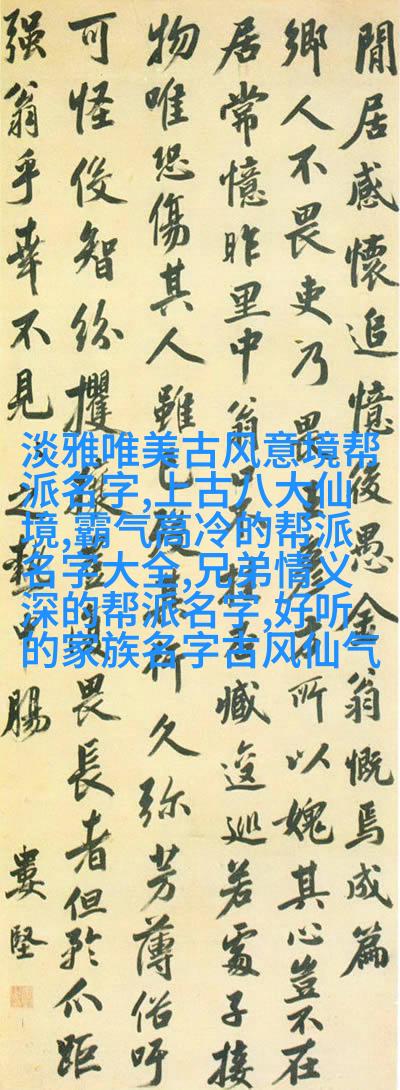 閒居感懷追憶俊愚金翁慨焉成篇
鄉人不畏吏乃畏里彥方所以媿其心豈不在
居常憶昨里中翁藏逡巡若處子接
物唯恐傷其人雖已行久弥芳薄俗吁
可怪俊智紛攫畏長者但矜爪距
强翁乎幸不見之中腸
婁堅
淡雅唯美古风意境帮
派名字,上古八大仙
境,霸气高冷的帮派
名字大全,兄弟情义
深的帮派名字,好听
的家族名字古风仙气